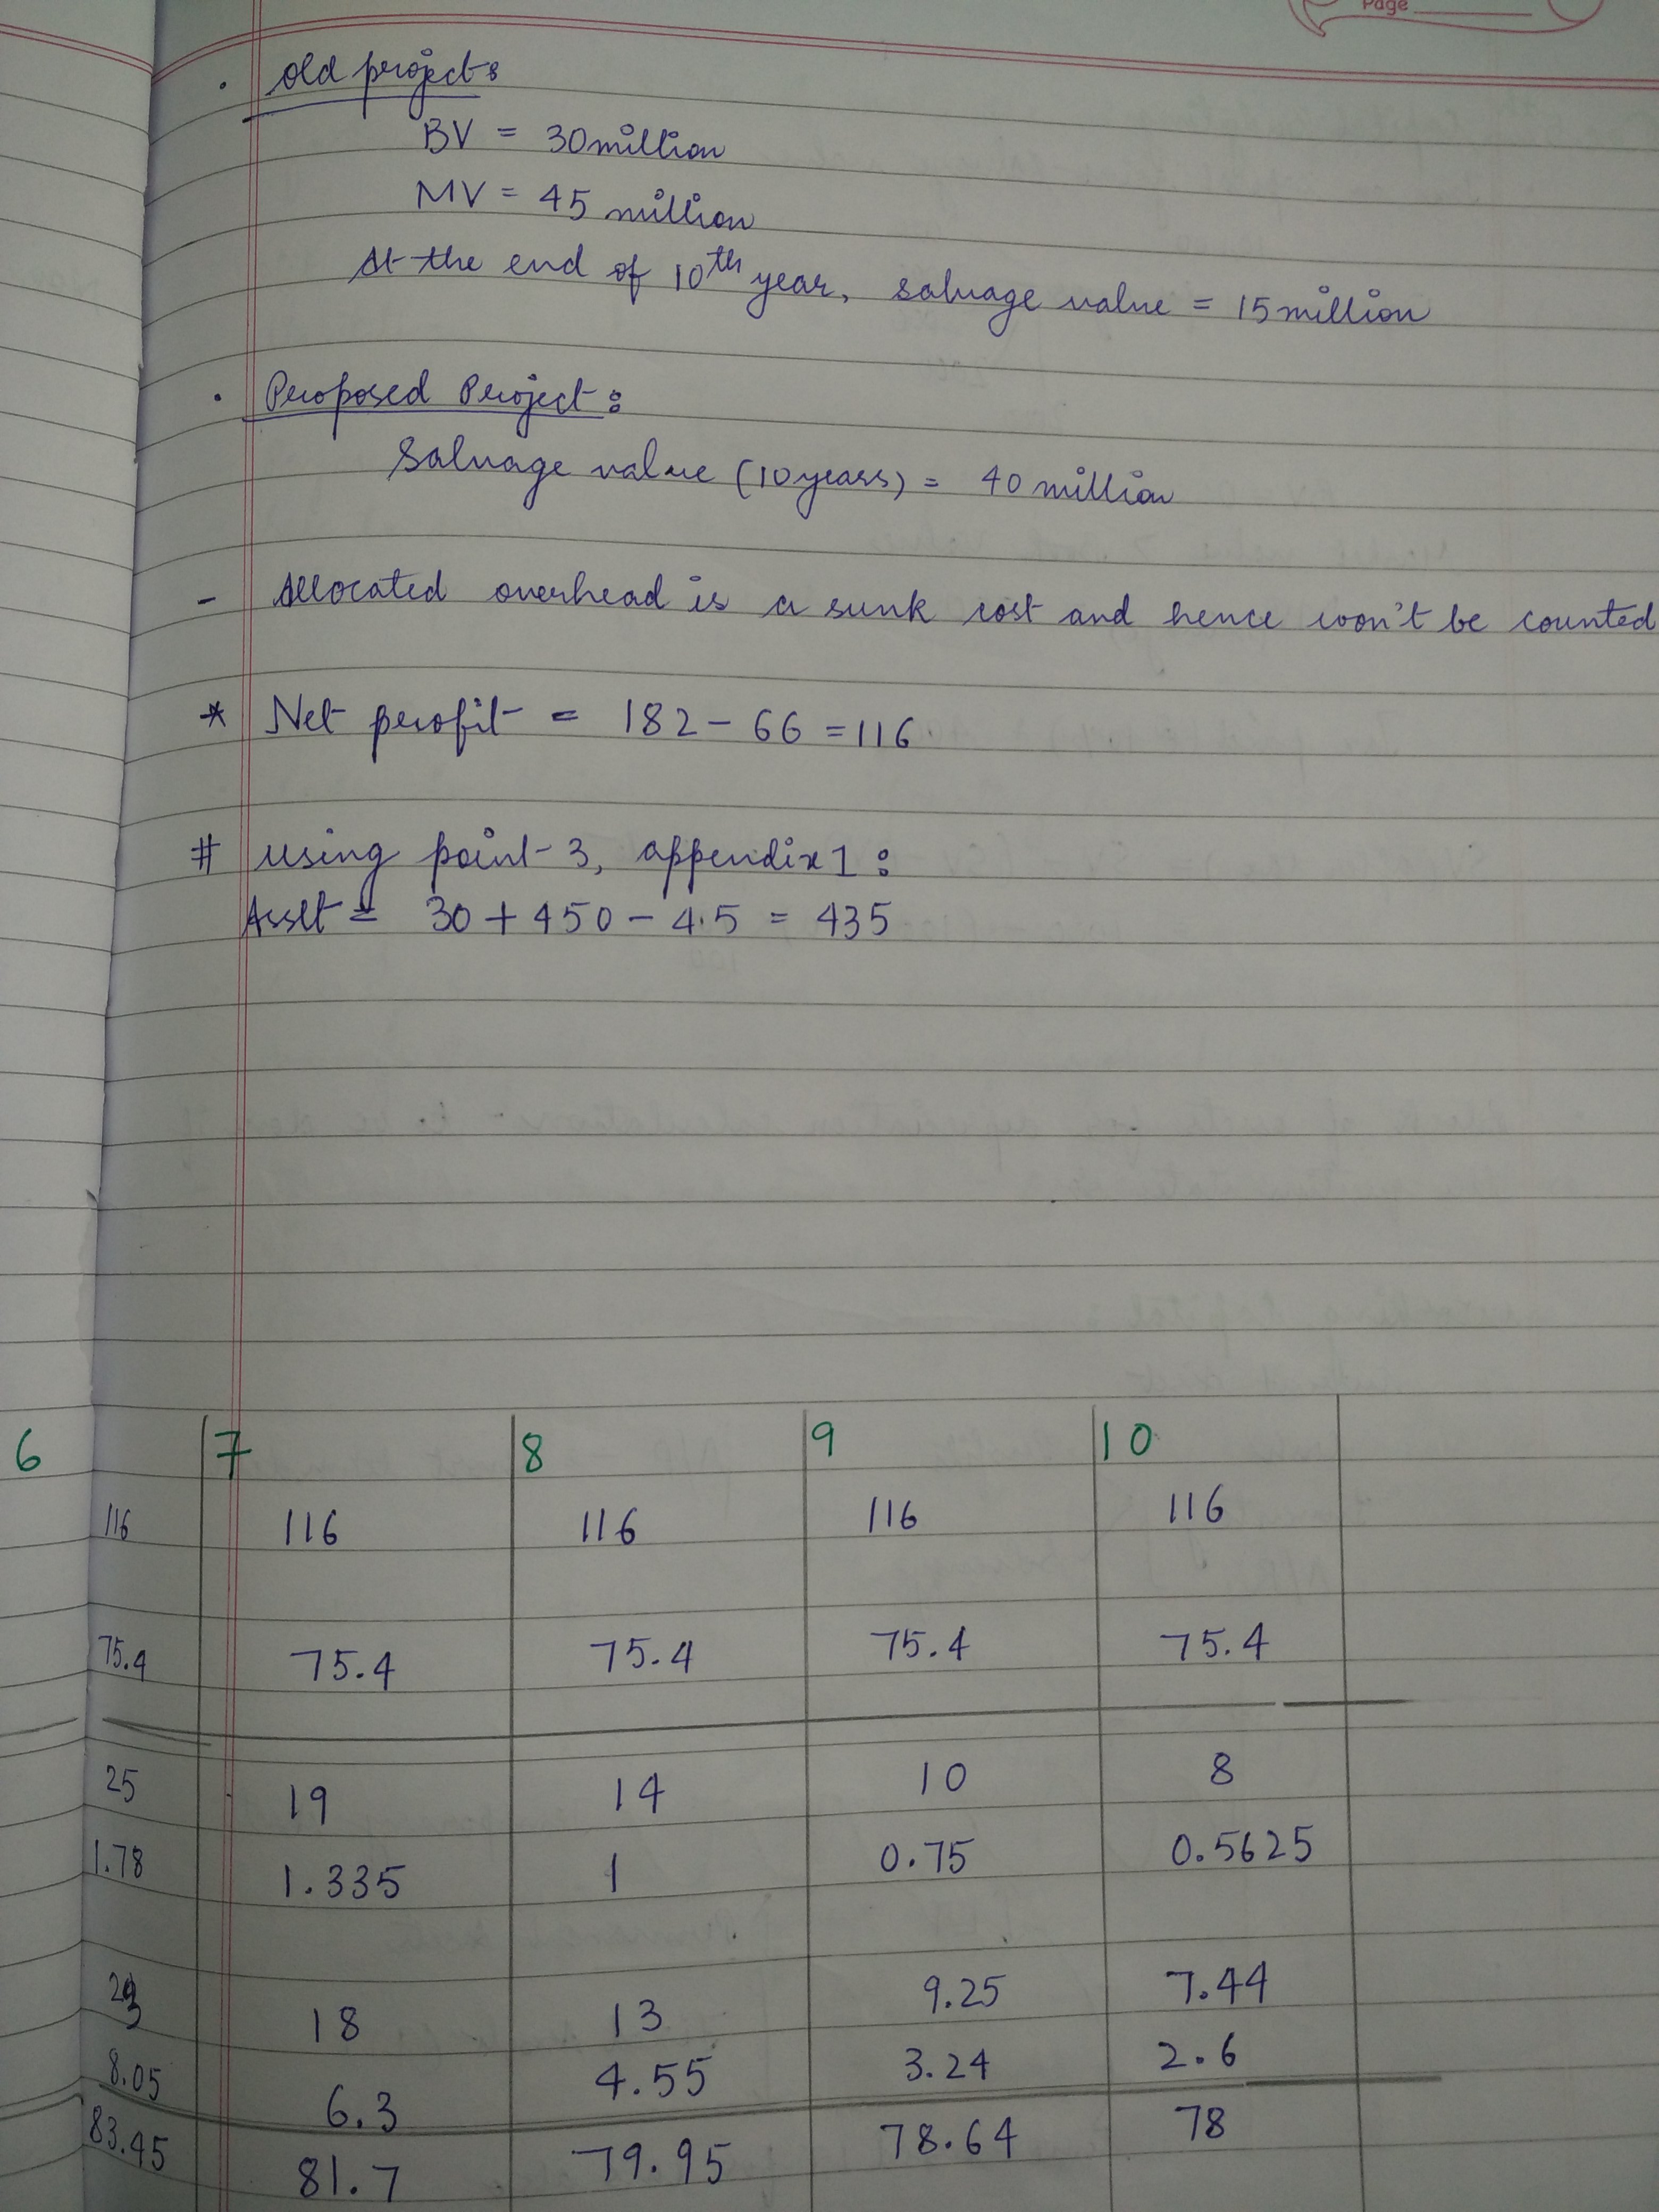 Page
• Old projects
BV = 30 million
MV = 45 million
At the end of 10th year, salvage value = 15 million
• Proposed Project:
Salvage value (10 years) = 40 million
- Allocated overhead is a sunk cost and hence won't be counted
* Net profit = 182 - 66 = 116.
# Using point 3, appendix 1:
Asset = 30 + 450 - 4.5 = 435
6 7 8 9 10
116 116 116 116 116
75.4 75.4 75.4 75.4 75.4
25 19 14 10 8
1.78 1.335 1 0.75 0.5625
18 13 9.25 7.44
8.05 6.3 4.55 3.24 2.6
83.45 81.7 79.95 78.64 78